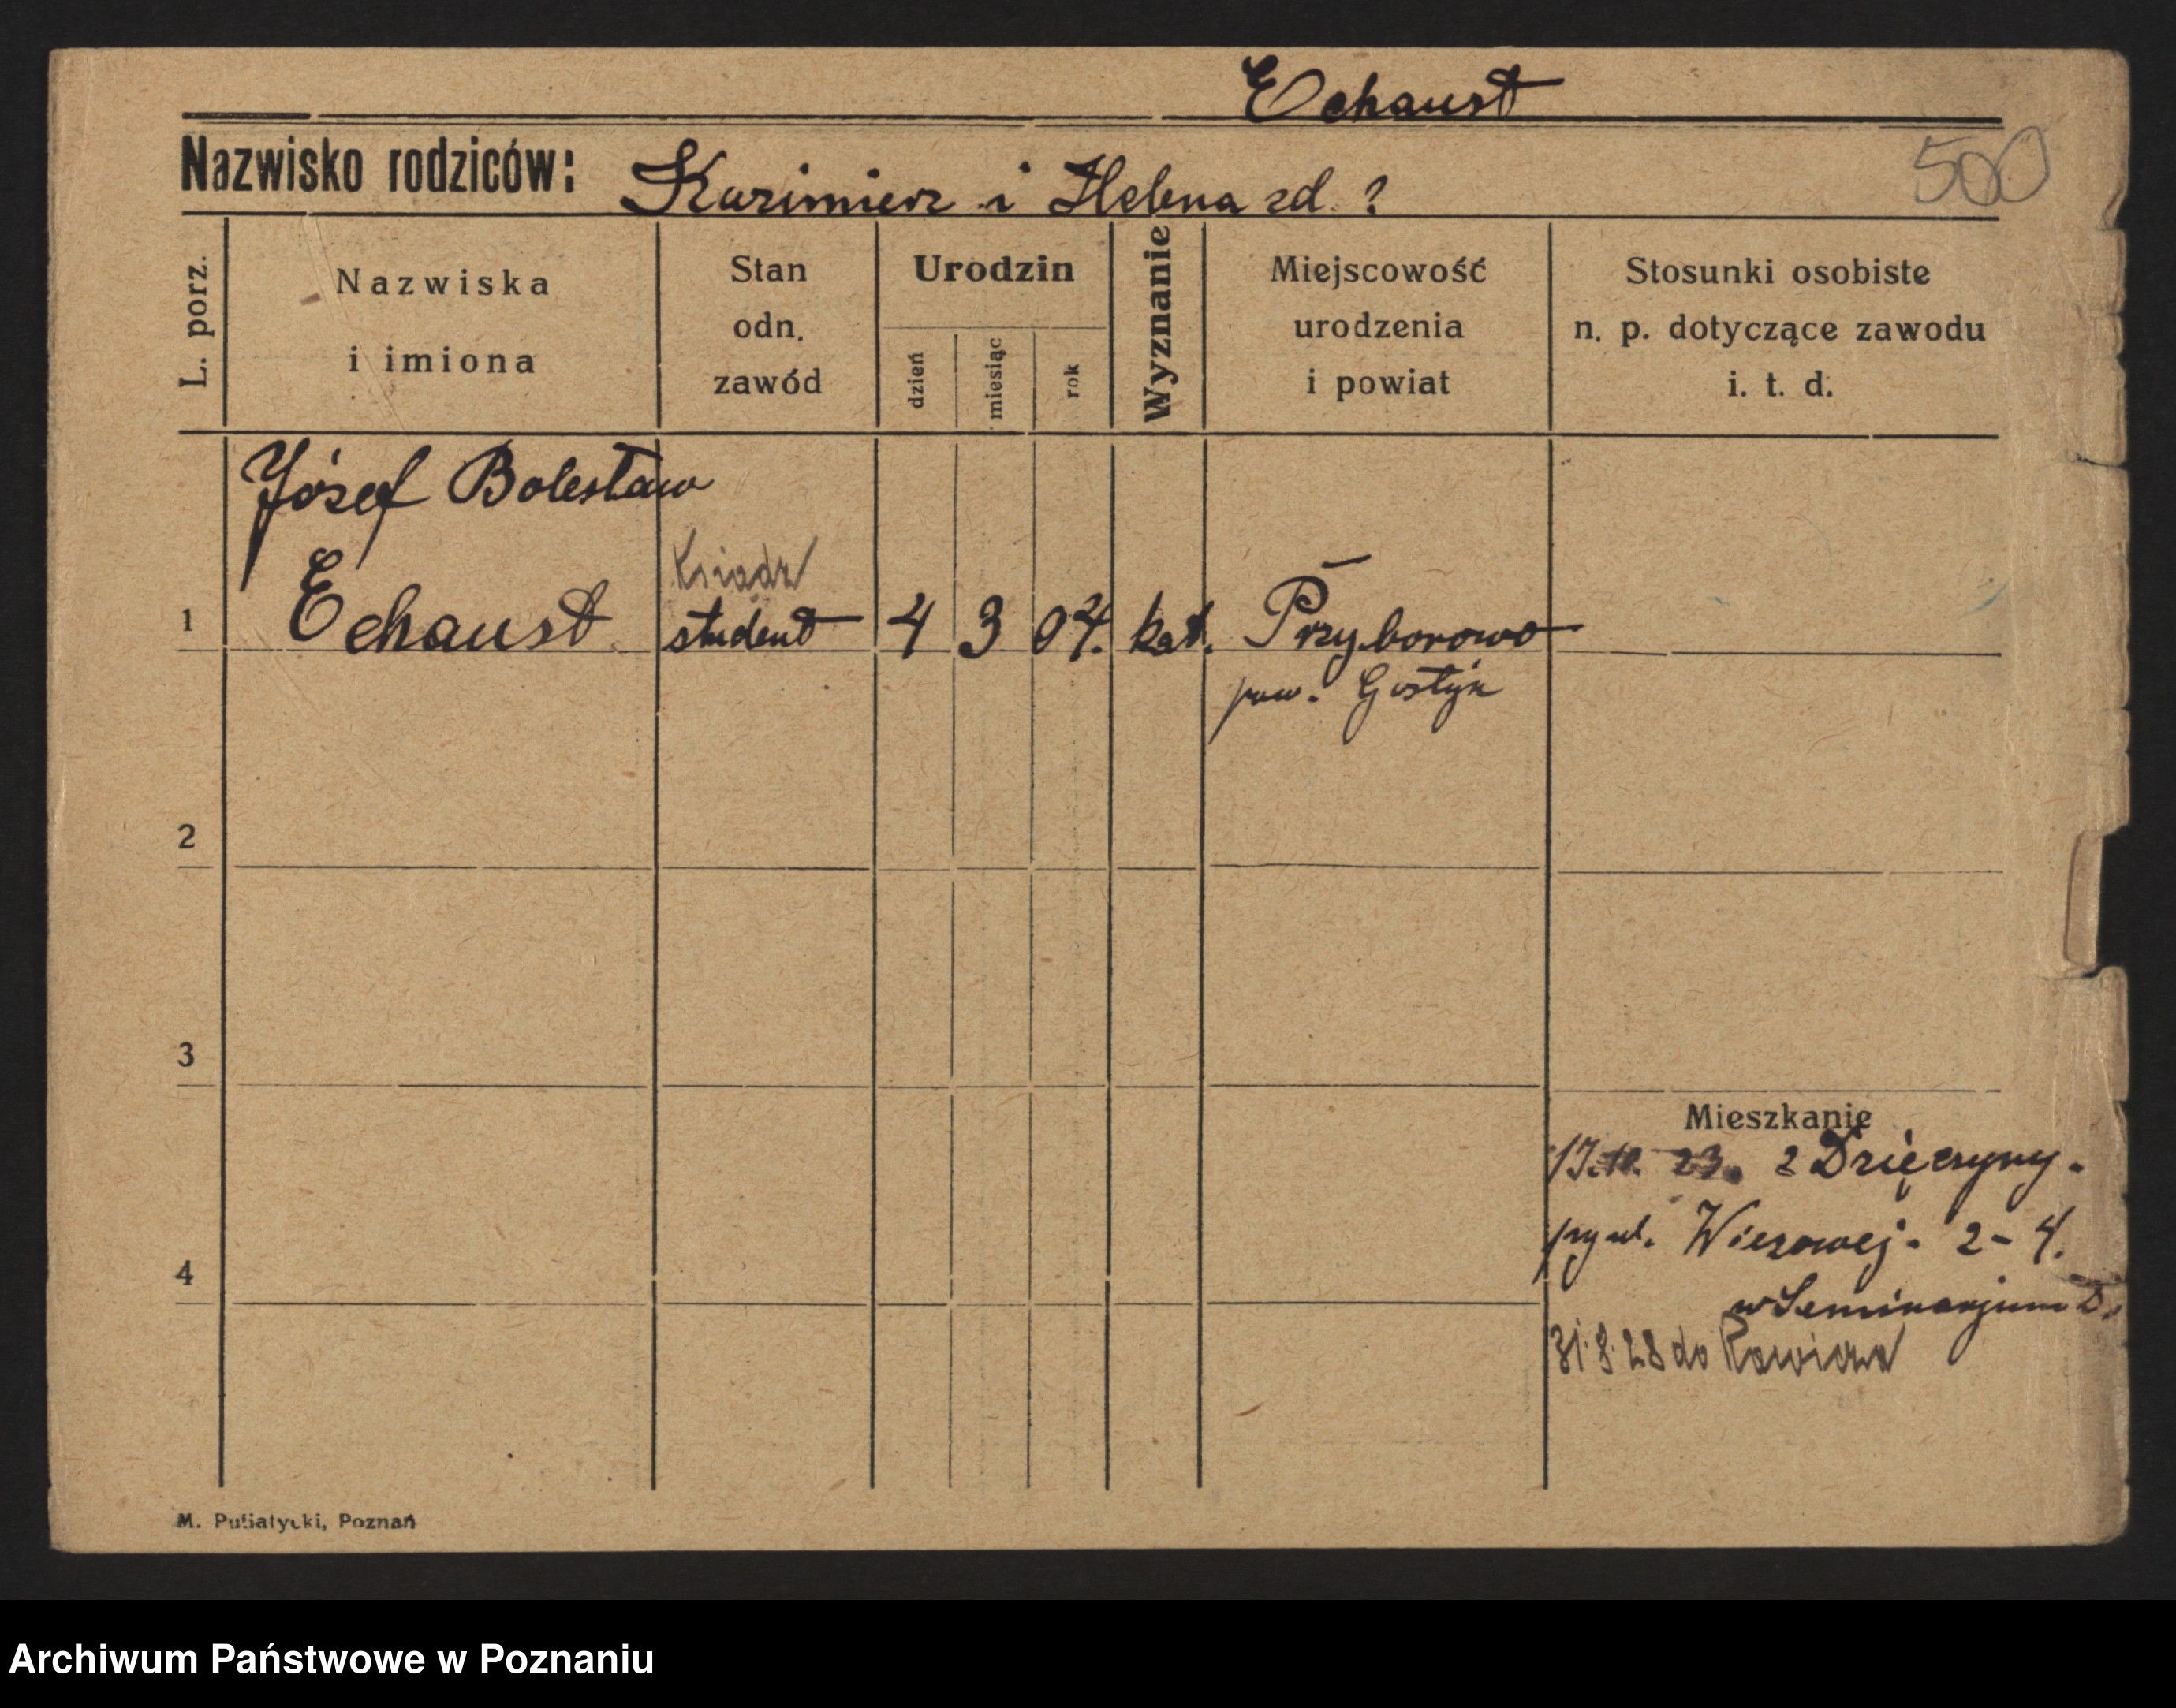 Echaust
Nazwisko rodziców: Kazimierz i Helena zd. ?
500
L. porz.
Nazwiska
i imiona
Stan
odn.
zawód
Urodzin
dzień
miesiąc
rok
Wyznanie
Miejscowość
urodzenia
i powiat
Stosunki osobiste
n. p. dotyczące zawodu
i. t. d.
Józef Bolesław
Ksiądz
1 Echaust student 4 3 04. kat. Przyborowo
pow. Gostyń
2
3
Mieszkanie
23. z Dzięczyny.
przy ul. Wieżowej. 2-4.
4
w Seminarjum D.
31.8.28 do Rawicza
M. Putiatycki, Poznań
Archiwum Państwowe w Poznaniu